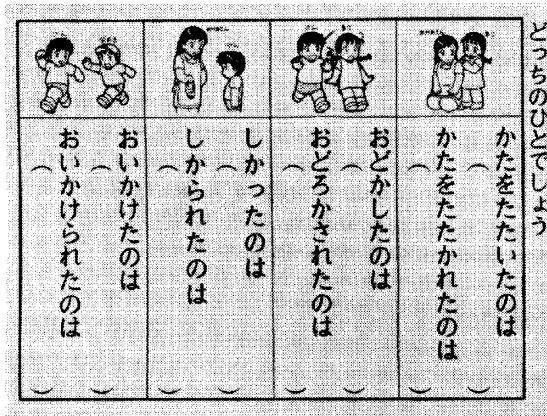 どっちのひとでしょう
かたをたたいたのは
(　　　)
かたをたたかれたのは
(　　　)
おどかしたのは
(　　　)
おどろかされたのは
(　　　)
しかったのは
(　　　)
しかられたのは
(　　　)
おいかけたのは
(　　　)
おいかけられたのは
(　　　)